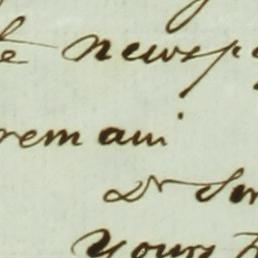 newspa
remain
Dr Sir
Yours